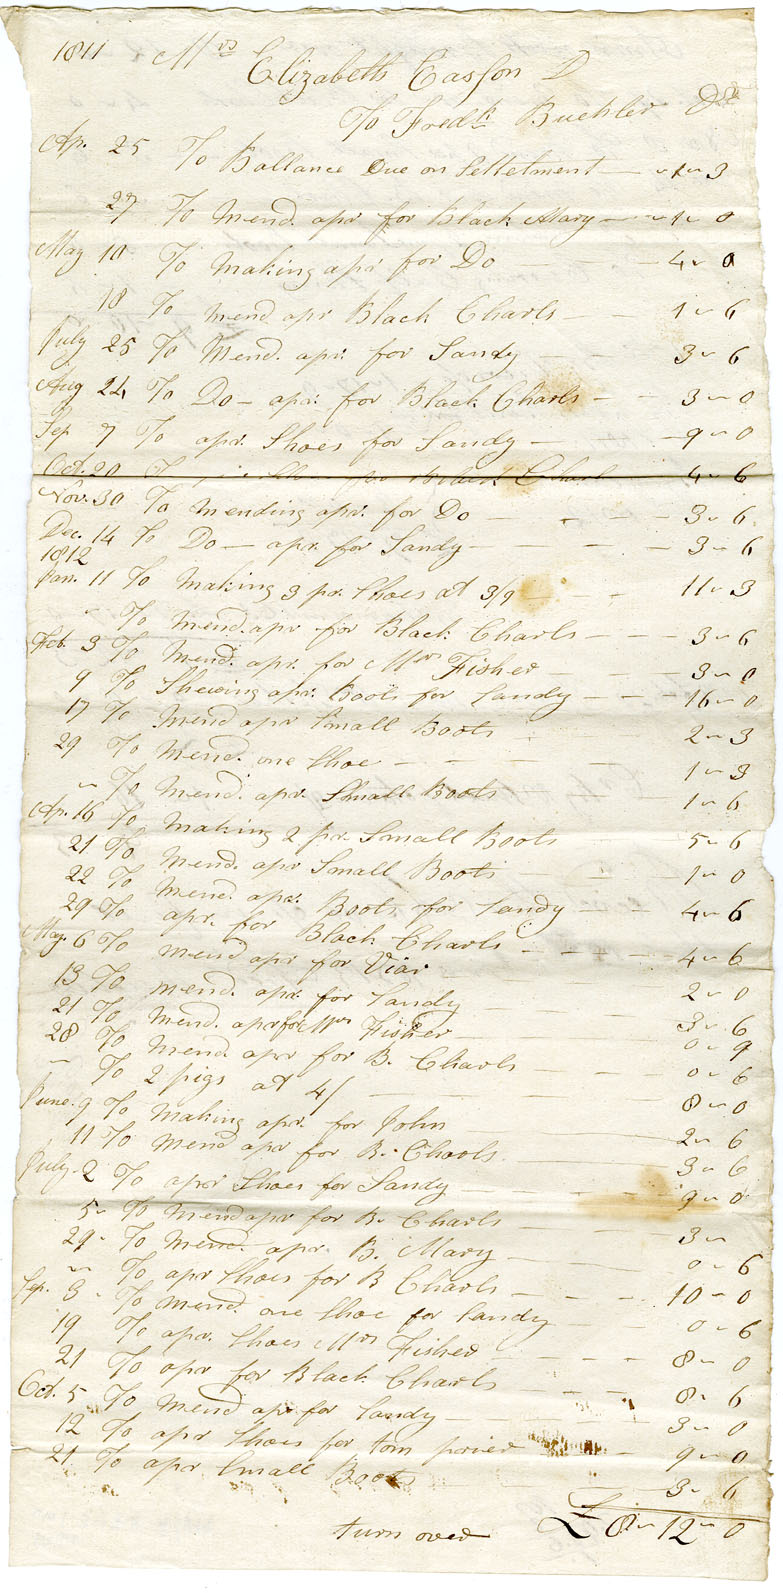 1811 Mrs Elizabeth Casson D
To Fredk Buehler Dr
Ap. 25 To Ballance Due on Settelment 1 3
27 To mend. apr for Black Mary 1 0
May 10 To making apr for Do 4 0
18 To mend apr Black Charls 1 6
July 25 To Mend. apr. for Sandy 3 6
Aug 24 To Do apr. for Black Charls 3 0
Sep 7 To apr. Shoes for Sandy 9 0
Oct. 20 To Black Charls 4 6
Nov. 30 To mending apr. for Do 3 6
Dec. 14 To Do apr. for Sandy 3 6
1812
Jan. 11 To Making 3 pr. Shoes at 3/9 11 3
" To mend. apr for Black Charls 3 6
Feb. 3 To Mend. apr. for Mrs Fisher 3 0
9 To Shewing apr. Boots for Sandy 16 0
17 To Mend apr Small Boots 2 3
29 To Mend. one Shoe 1 3
" To Mend. apr. Small Boots 1 6
Ap. 16 To Making 2 pr. Small Boots 5 6
21 To Mend. apr Small Boots 1 0
22 To Mend. apr. Boots for Sandy 4 6
29 To apr. for Black Charls 4 6
May. 6 To mend apr for Viar 2 0
13 To mend. apr. for Sandy 3 6
21 To Mend. apr for Mrs Fisher 0 9
28 To Mend apr for B. Charls 0 6
" To 2 pigs at 4/ 8 0
June. 9 To Making apr. for John 2 6
11 To Mend apr for B. Charls 3 6
July. 2 To apr Shoes for Sandy 9 0
5 To Mend apr for B. Charls 3
29 To Mend. apr. B. Mary 0 6
" To apr Shoes for B Charls 10 0
Sep. 3 To Mend. one Shoe for Sandy 0 6
19 To apr. Shoes Mrs Fisher 8 0
21 To apr for Black Charls 8 6
Oct. 5 To Mend apr for Sandy 3 0
12 To apr Shoes for tom prier 9 0
21 To apr Small Boots 3 6
turn over £ 8 12 0